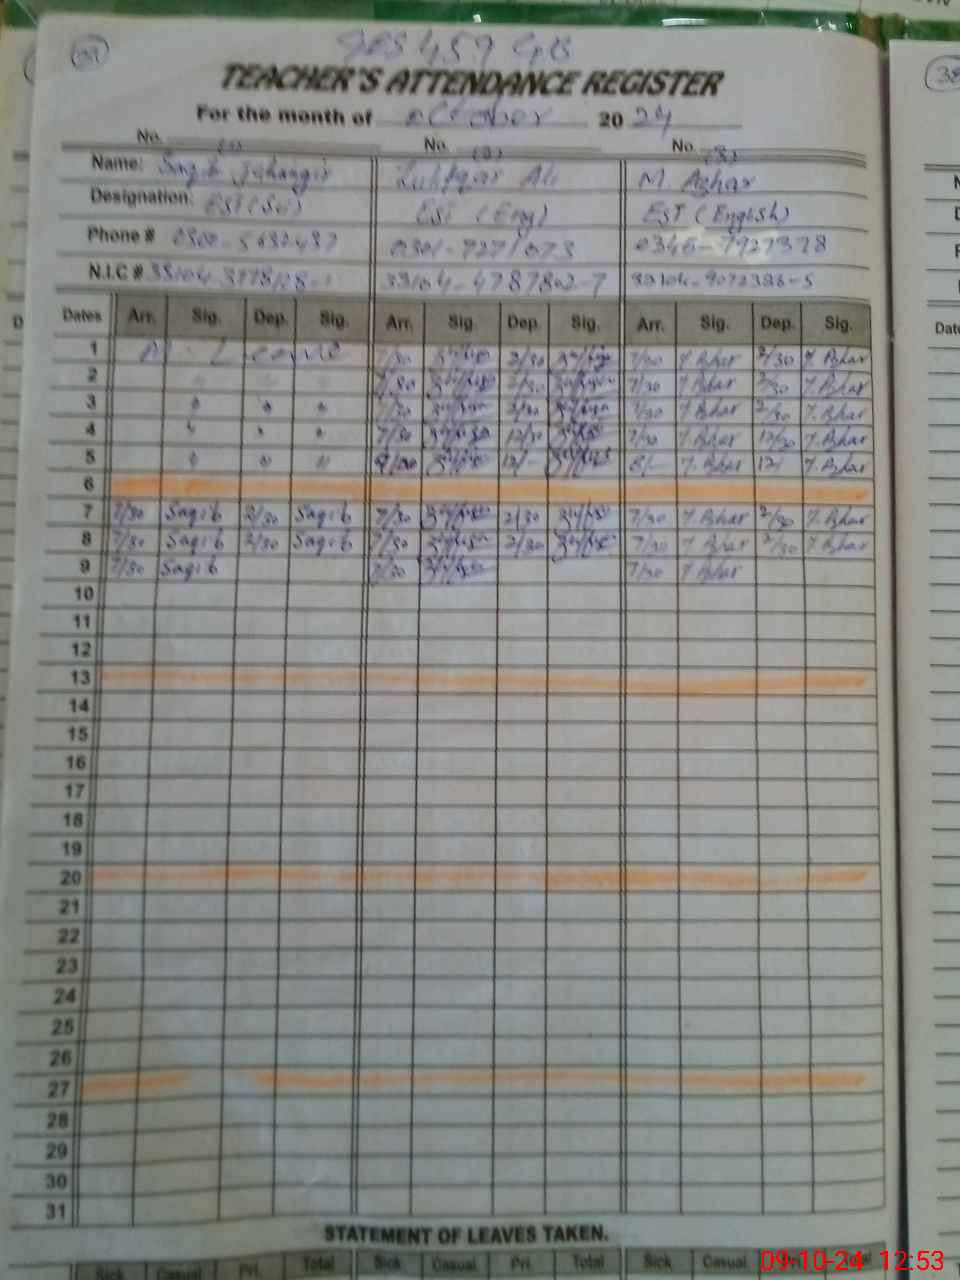 39
GES 459 GB
38
TEACHER'S ATTENDANCE REGISTER
For the month of october 2024
No. (1) No. (2) No. (3)
Name: Saqib Jahangir Zulifqar Ali M. Azhar
Designation: EST (Sci) EST (Eng) EST (English)
Phone # 0346-7927378
N.I.C # 33104-4787802-7 33104-9072386-5
Dates Arr. Sig. Dep. Sig. Arr. Sig. Dep. Sig. Arr. Sig. Dep. Sig.
1 M. Leave 7/30 2/30 7/30 M. Azhar 2/30 M. Azhar
2 7/30 2/30 7/30 M. Azhar 2/30 M. Azhar
3 " " " 7/30 2/30 7/30 M. Azhar 2/30 M. Azhar
4 " " " 7/30 12/30 7/30 M. Azhar 12/30 M. Azhar
5 " " " 12/- 8/- M. Azhar 12/ M. Azhar
6
7 7/30 Saqib 2/30 Saqib 7/30 2/30 7/30 M. Azhar 2/30 M. Azhar
8 7/30 Saqib 2/30 Saqib 7/30 2/30 7/30 M. Azhar 2/30 M. Azhar
9 7/30 Saqib 7/30 7/30 M. Azhar
10
11
12
13
14
15
16
17
18
19
20
21
22
23
24
25
26
27
28
29
30
31
STATEMENT OF LEAVES TAKEN.
Sick Casual Pri. Total Sick Casual Pri. Total Sick Casual Pri.
09-10-24 12:53